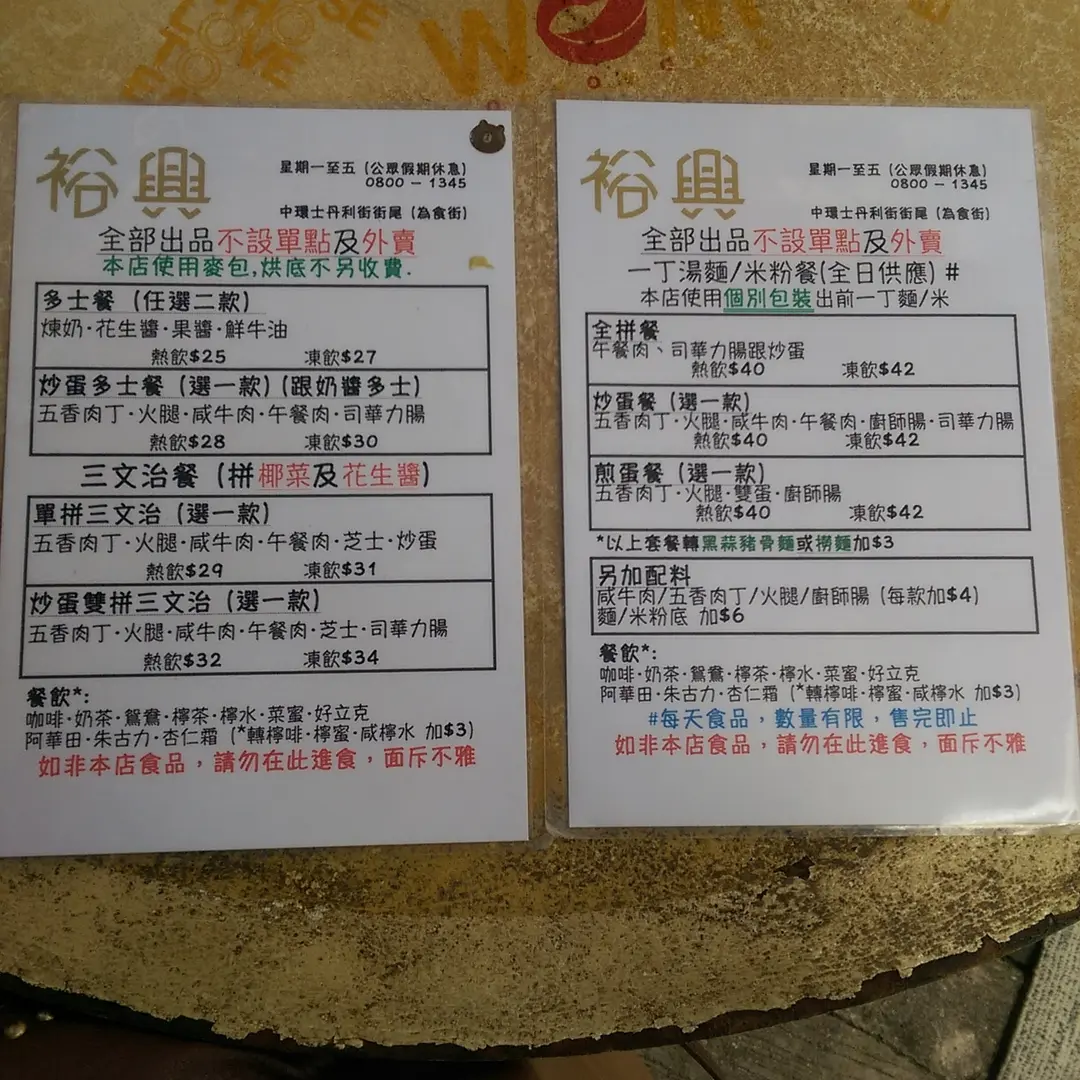 CHOSE
LOVE
裕興
星期一至五 (公眾假期休息)
0800 - 1345
中環士丹利街街尾 (為食街)
全部出品不設單點及外賣
本店使用麥包,烘底不另收費.
多士餐 (任選二款)
煉奶·花生醬·果醬·鮮牛油
熱飲$25 凍飲$27
炒蛋多士餐 (選一款) (跟奶醬多士)
五香肉丁·火腿·咸牛肉·午餐肉·司華力腸
熱飲$28 凍飲$30
三文治餐 (拼椰菜及花生醬)
單拼三文治 (選一款)
五香肉丁·火腿·咸牛肉·午餐肉·芝士·炒蛋
熱飲$29 凍飲$31
炒蛋雙拼三文治 (選一款)
五香肉丁·火腿·咸牛肉·午餐肉·芝士·司華力腸
熱飲$32 凍飲$34
餐飲*:
咖啡·奶茶·鴛鴦·檸茶·檸水·菜蜜·好立克
阿華田·朱古力·杏仁霜 (*轉檸啡·檸蜜·咸檸水 加$3)
如非本店食品，請勿在此進食，面斥不雅
裕興
星期一至五 (公眾假期休息)
0800 - 1345
中環士丹利街街尾 (為食街)
全部出品不設單點及外賣
一丁湯麵/米粉餐(全日供應) #
本店使用個別包裝出前一丁麵/米
全拼餐
午餐肉、司華力腸跟炒蛋
熱飲$40 凍飲$42
炒蛋餐 (選一款)
五香肉丁·火腿·咸牛肉·午餐肉·廚師腸·司華力腸
熱飲$40 凍飲$42
煎蛋餐 (選一款)
五香肉丁·火腿·雙蛋·廚師腸
熱飲$40 凍飲$42
*以上套餐轉黑蒜豬骨麵或撈麵加$3
另加配料
咸牛肉/五香肉丁/火腿/廚師腸 (每款加$4)
麵/米粉底 加$6
餐飲*:
咖啡·奶茶·鴛鴦·檸茶·檸水·菜蜜·好立克
阿華田·朱古力·杏仁霜 (*轉檸啡·檸蜜·咸檸水 加$3)
#每天食品，數量有限，售完即止
如非本店食品，請勿在此進食，面斥不雅